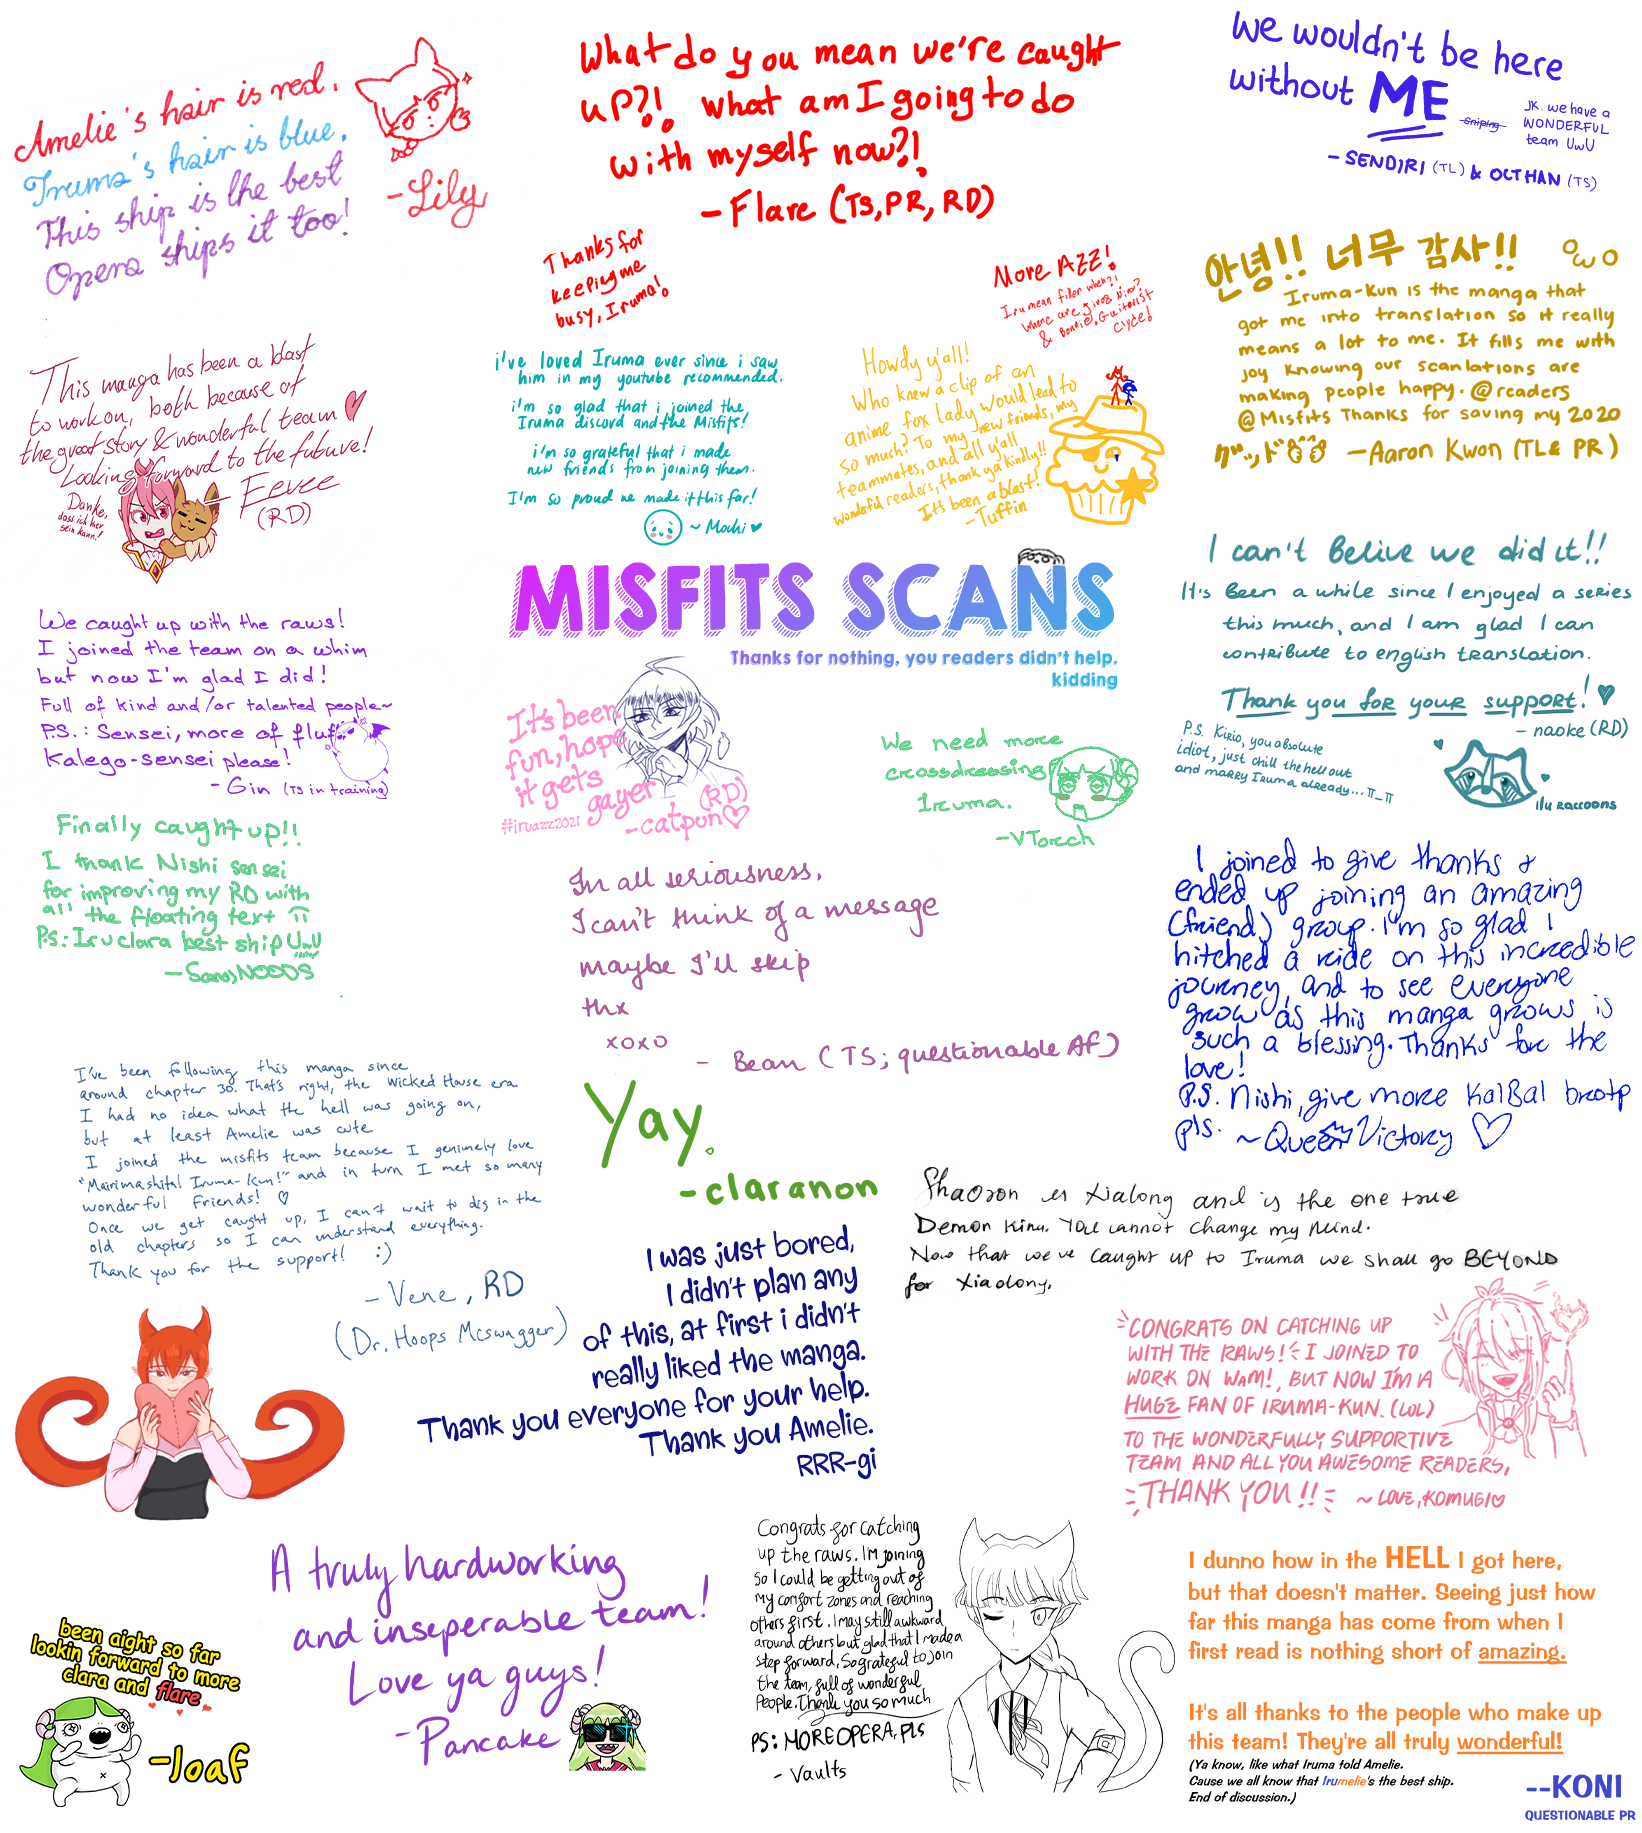 Amelie's hair is red.
Iruma's hair is blue.
This ship is the best
Opera ships it too!
-Lily
What do you mean we're caught
up?!. what am I going to do
with myself now?!
-Flare (TS, PR, RD)
Thanks for
keeping me
busy, Iruma!
We wouldn't be here
without ME
sniping
JK. we have a
WONDERFUL
team UwU
- SENDIRI (TL) & OCTHAN (TS)
More AZZ!
Iru mean filler when?!
Where are girog
& Bonnie, Guitarist
Clyde!
안녕!! 너무 감사!! OwO
Iruma-Kun is the manga that
got me into translation so it really
means a lot to me. It fills me with
joy knowing our scanlations are
making people happy. @readers
@Misfits Thanks for saving my 2020
-Aaron Kwon (TL & PR)
This manga has been a blast
to work on, both because of
the great story & wonderful team
Looking forward to the future!
- Eevee
(RD)
Danke,
dass ich hier
sein kann!
i've loved Iruma ever since i saw
him in my youtube recommended.
i'm so glad that i joined the
Iruma discord and the Misfits!
i'm so grateful that i made
new friends from joining them.
I'm so proud we made it this far!
~ Mochi ♥
Howdy y'all!
Who knew a clip of an
anime fox lady would lead to
so much? To my new friends, my
teammates, and all y'all
wonderful readers, thank ya kindly!!
It's been a blast!
-Tuffin
MISFITS SCANS
Thanks for nothing, you readers didn't help.
kidding
I can't Belive we did it!!
It's Been a while since I enjoyed a series
this much, and I am glad I can
contribute to english translation.
Thank you for your support! ♥
- naoke (RD)
P.S. Kirio, you absolute
idiot, just chill the hell out
and marry Iruma already... π_π
ilu raccoons
We caught up with the raws!
I joined the team on a whim
but now I'm glad I did!
Full of kind and/or talented people~
P.S.: Sensei, more of fluff
Kalego-sensei please!
- Gin (TS in training)
It's been
fun, hope
it gets
gayer
#iruazz2021
(RD)
-catpun♡
We need more
crossdressing
Iruma.
-VTorch
Finally caught up!!
I thank Nishi sensei
for improving my RD with
all the floating text π
P.S: Iruclara best ship UwU
-SansyNOODS
In all seriousness,
I can't think of a message
maybe I'll skip
thx
xoxo
- Bean (TS; questionable AF)
I joined to give thanks &
ended up joining an amazing
(friend) group. I'm so glad I
hitched a ride on this incredible
journey, and to see everyone
grow as this manga grows is
such a blessing. Thanks for the
love!
P.S. Nishi, give more KalBal brotp
pls.
~Queen Victory ♡
I've been following this manga since
around chapter 30. That's right, the Wicked House era
I had no idea what the hell was going on,
but at least Amelie was cute
I joined the misfits team because I genuinely love
"Mairimashita! Iruma-kun!" and in turn I met so many
wonderful friends! ♡
Once we get caught up, I can't wait to dig in the
old chapters so I can understand everything.
Thank you for the support! :)
- Vene, RD
(Dr. Hoops McSwagger)
Yay.
-claranon
Shaoron is Xialong and is the one true
Demon King. You cannot change my mind.
Now that we've caught up to Iruma we shall go BEYOND
for Xiaolong.
I was just bored,
I didn't plan any
of this, at first i didn't
really liked the manga.
Thank you everyone for your help.
Thank you Amelie.
RRR-gi
CONGRATS ON CATCHING UP
WITH THE RAWS! I JOINED TO
WORK ON WAM!, BUT NOW I'M A
HUGE FAN OF IRUMA-KUN. (LOL)
TO THE WONDERFULLY SUPPORTIVE
TEAM AND ALL YOU AWESOME READERS,
THANK YOU!!
~ LOVE, KOMUGI♡
been aight so far
lookin forward to more
clara and flare
-loaf
A truly hardworking
and inseperable team!
Love ya guys!
-Pancake
Congrats for catching
up the raws. I'm joining
so I could be getting out of
my comfort zones and reaching
others first. I may still awkward
around others but glad that I made a
step forward. So grateful to join
the team, full of wonderful
People. Thank you so much
PS: MORE OPERA, PLS
- Vaults
I dunno how in the HELL I got here,
but that doesn't matter. Seeing just how
far this manga has come from when I
first read is nothing short of amazing.
It's all thanks to the people who make up
this team! They're all truly wonderful!
(Ya know, like what Iruma told Amelie.
Cause we all know that Irumelie's the best ship.
End of discussion.)
--KONI
QUESTIONABLE PR